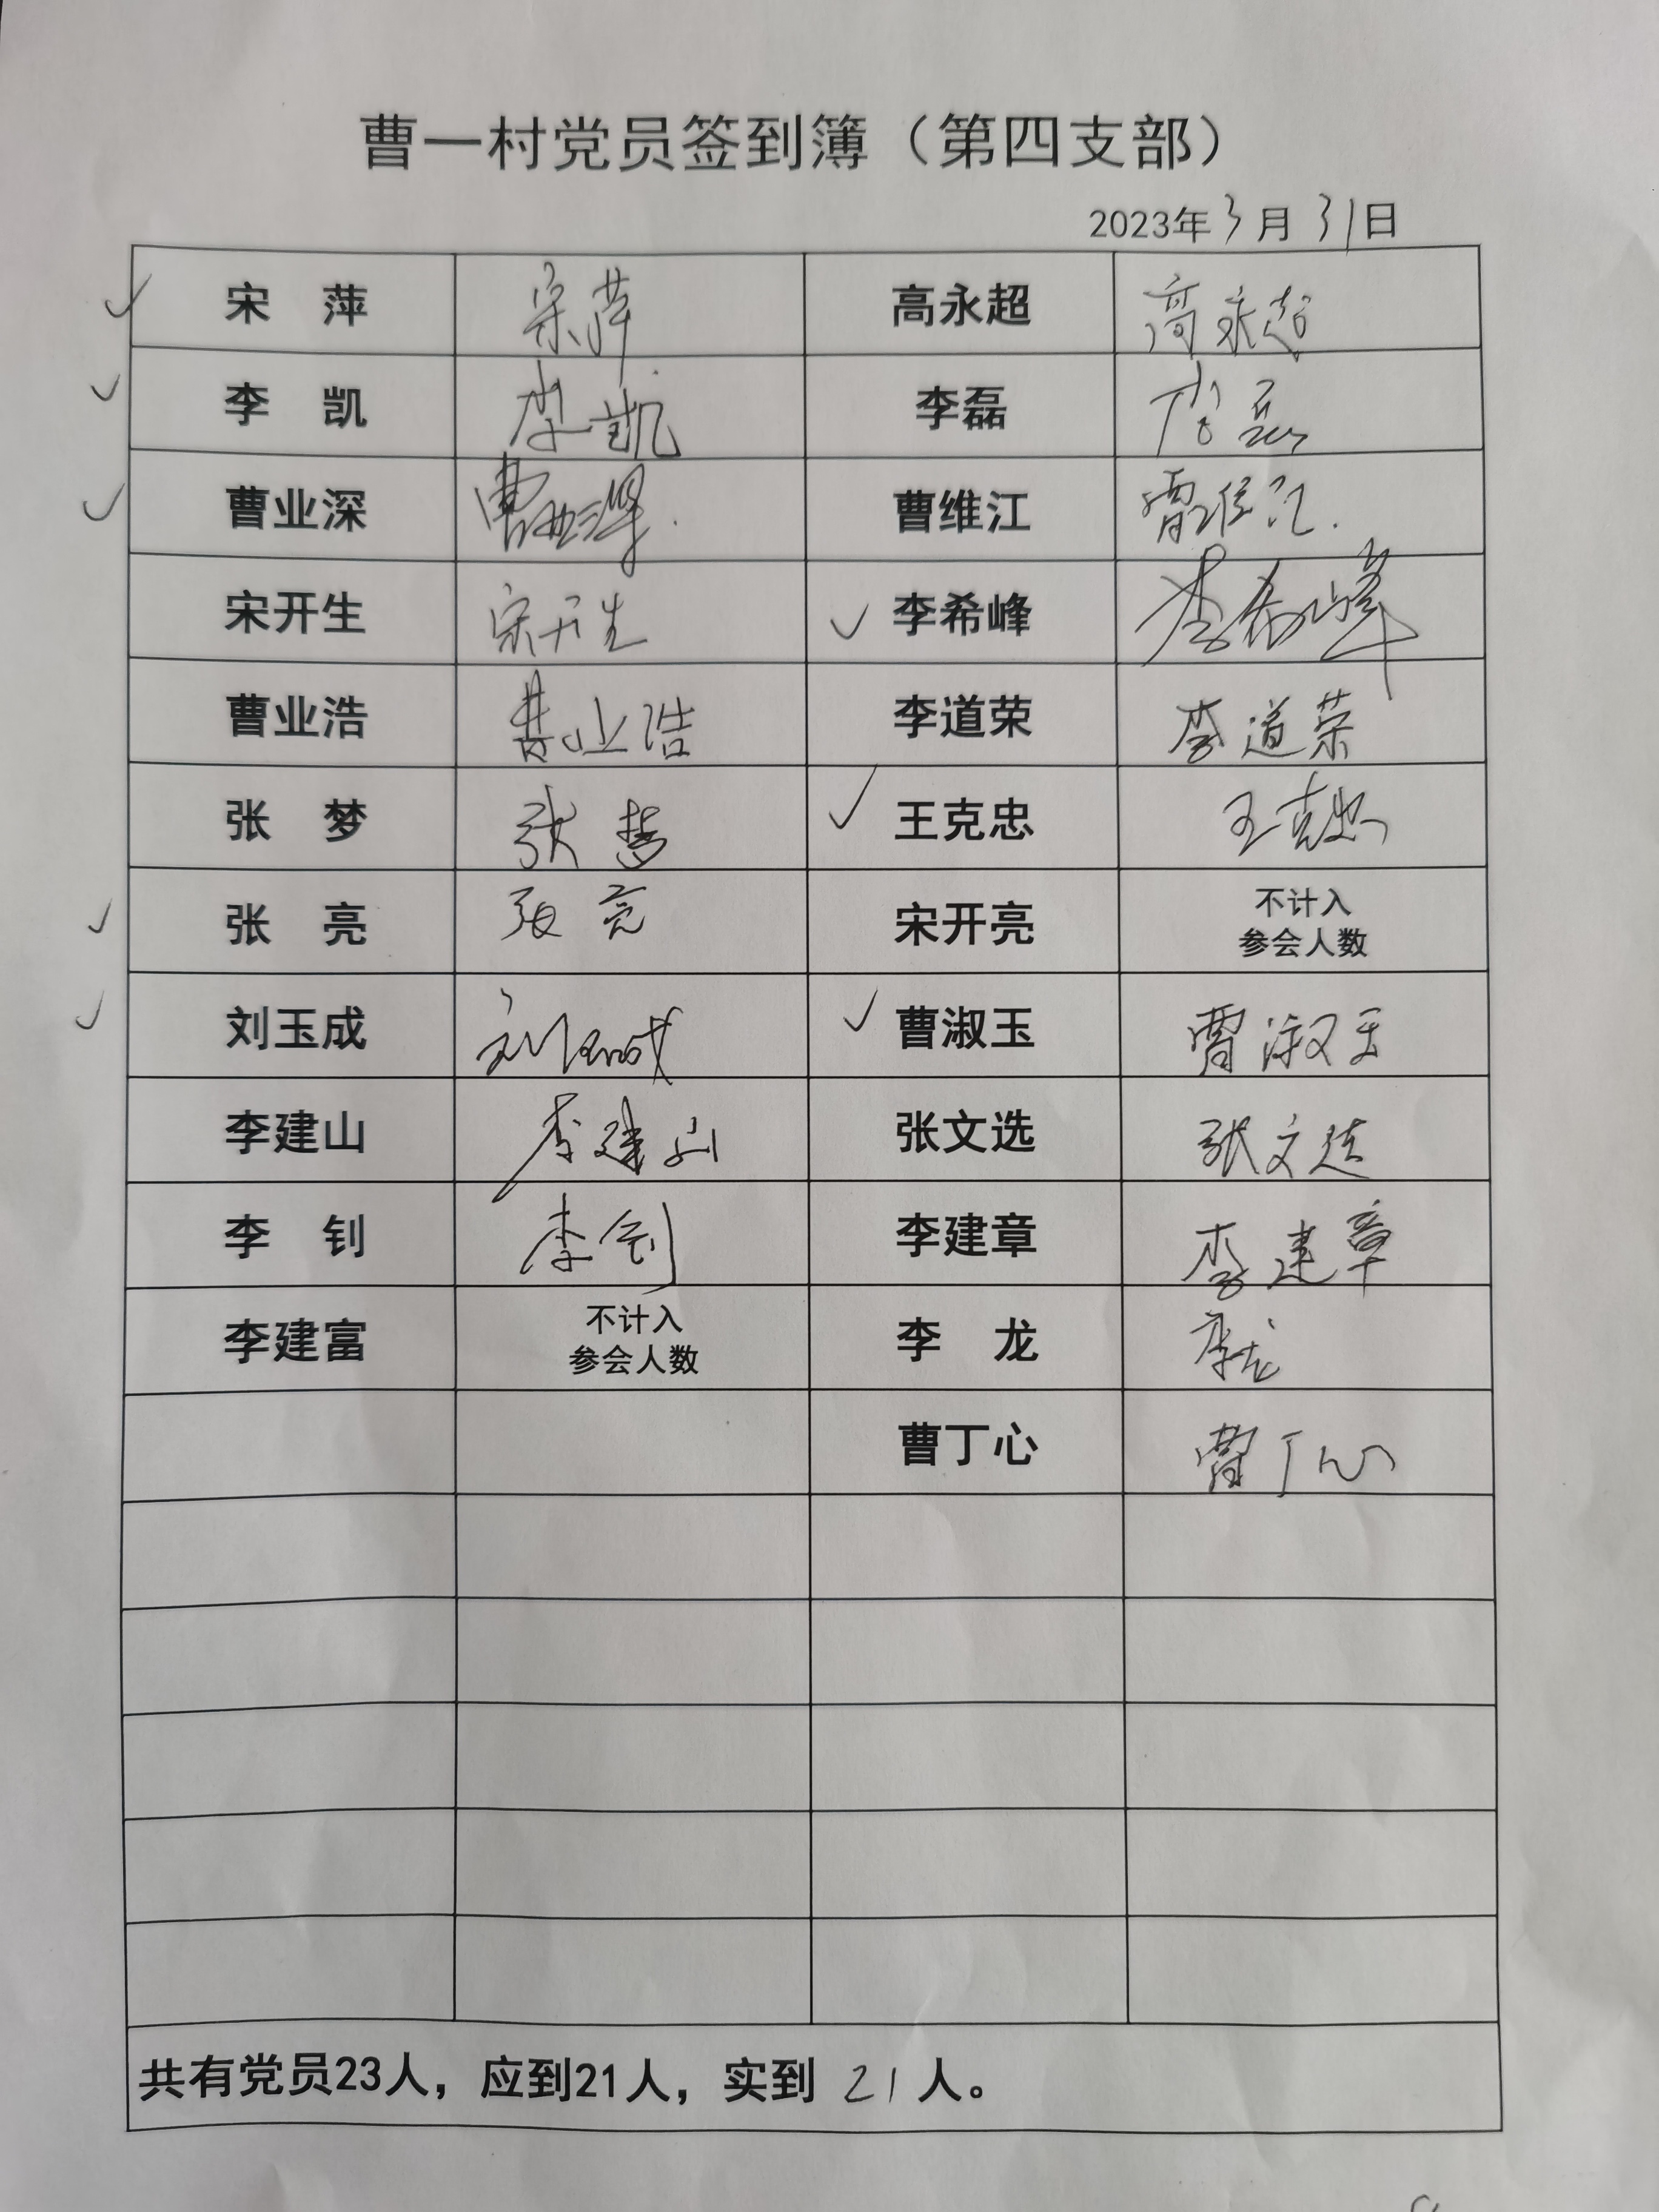 曹一村党员签到簿（第四支部）
2023年3月31日
宋 萍 宋萍 高永超 高永超
李 凯 李凯 李磊 李磊
曹业深 曹业深 曹维江 曹维江.
宋开生 宋开生 李希峰 李希峰
曹业浩 曹业浩 李道荣 李道荣
张 梦 张梦 王克忠 王克忠
张 亮 张亮 宋开亮 不计入
参会人数
刘玉成 刘玉成 曹淑玉 曹淑玉
李建山 李建山 张文选 张文选
李 钊 李钊 李建章 李建章
李建富 不计入 李 龙 李龙
参会人数
曹丁心 曹丁心
共有党员23人，应到21人，实到 21人。